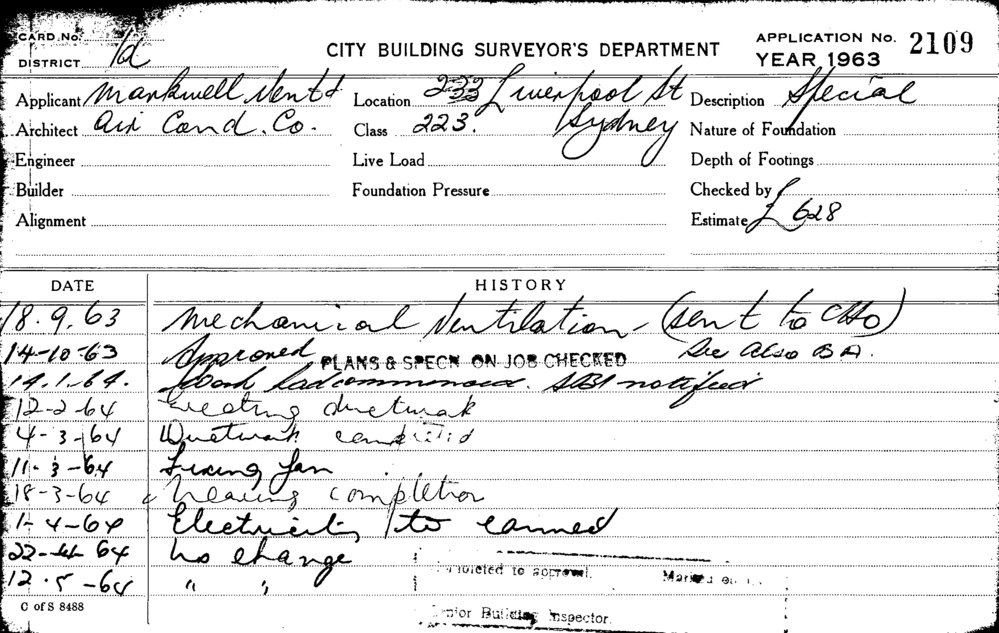 CARD No.
DISTRICT 1d
CITY BUILDING SURVEYOR'S DEPARTMENT
APPLICATION No. 2109
YEAR 1963
Applicant Markwell Vent &
Architect Air Cond. Co.
Engineer
Builder
Alignment
Location 233 Liverpool St
Sydney
Class 223.
Live Load
Foundation Pressure
Description Special
Nature of Foundation
Depth of Footings
Checked by
Estimate £ 628
DATE HISTORY
18.9.63 Mechanical Ventilation - (sent to CHO)
14-10-63 Approved PLANS & SPECN ON JOB CHECKED See also B A.
14.1.64. Work had commenced. SBI notified
12-2-64 Erecting ductwork
4-3-64 Ductwork completed
11-3-64 Fixing fan
18-3-64 Nearing completion
1-4-64 Electricity to
22-4-64 No change
12.5-64 " "
to approval. Marked
Senior Building Inspector.
C of S 8488